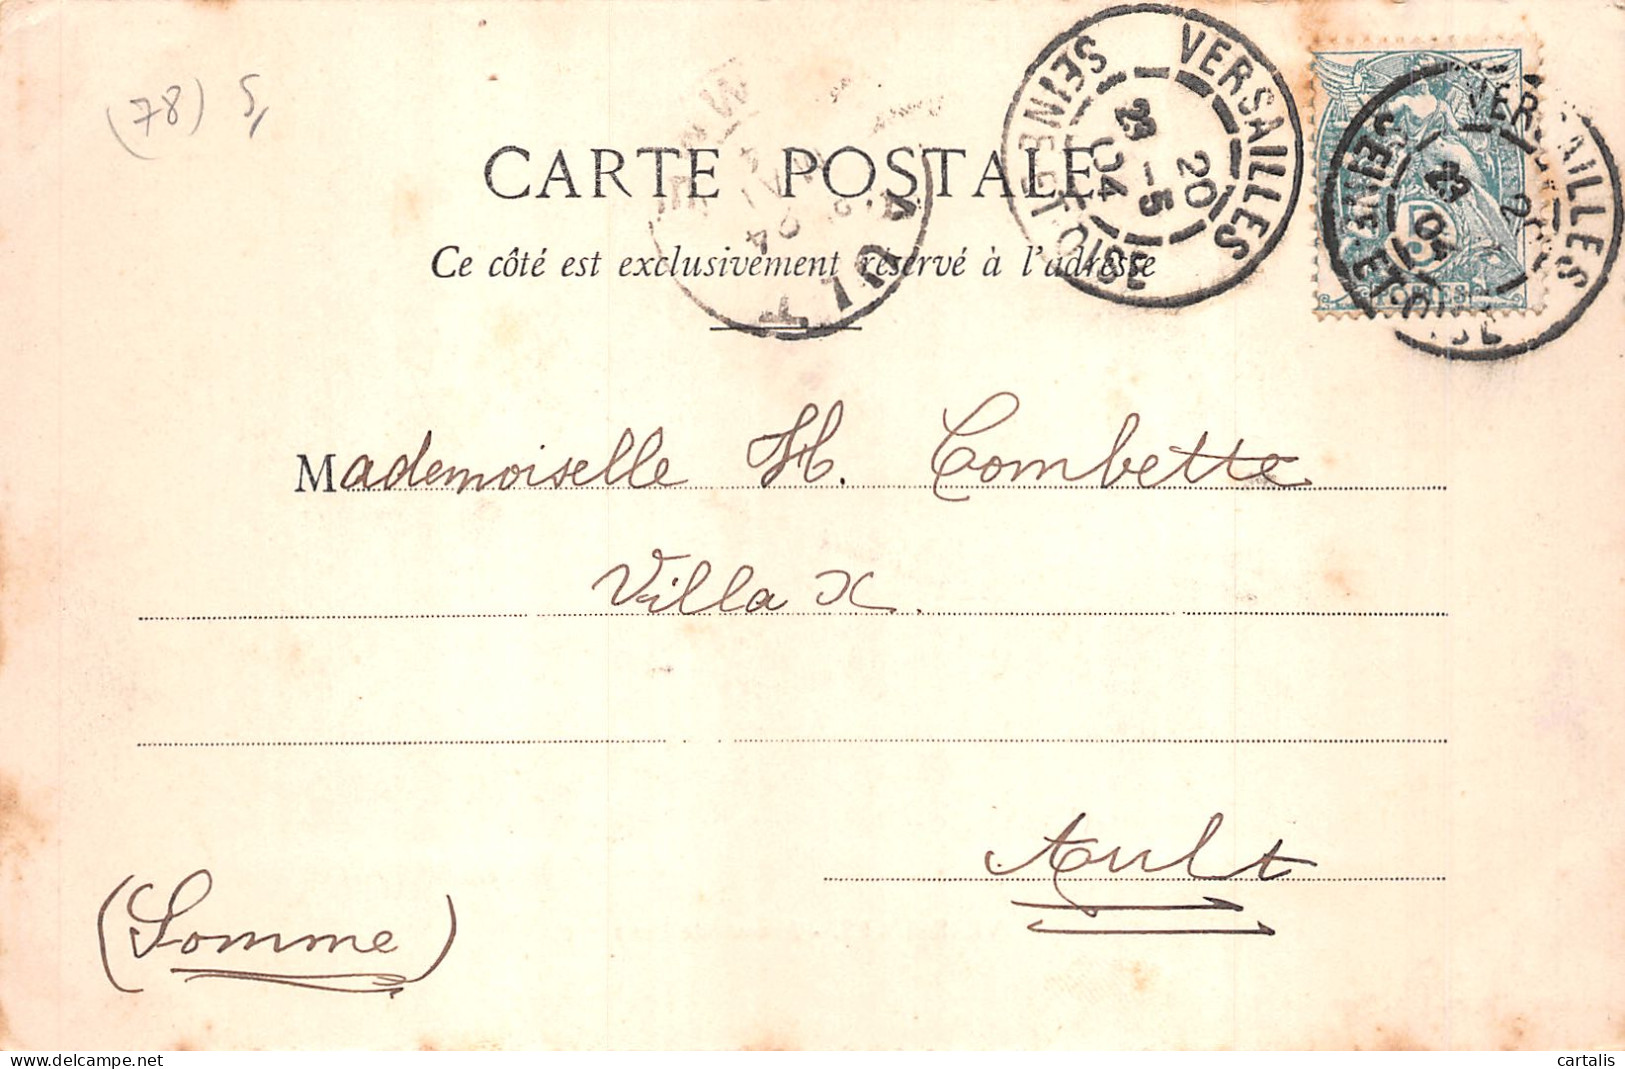 (78) 5,
CARTE POSTALE
Ce côté est exclusivement réservé à l'adresse
AULT
VERSAILLES
20
23 -5
04
SEINE ET OISE
VERSAILLES
23
04
SEINE ET OISE
5
POSTES
Mademoiselle H. Combette
Villa X.
Ault
(Somme)
cartalis